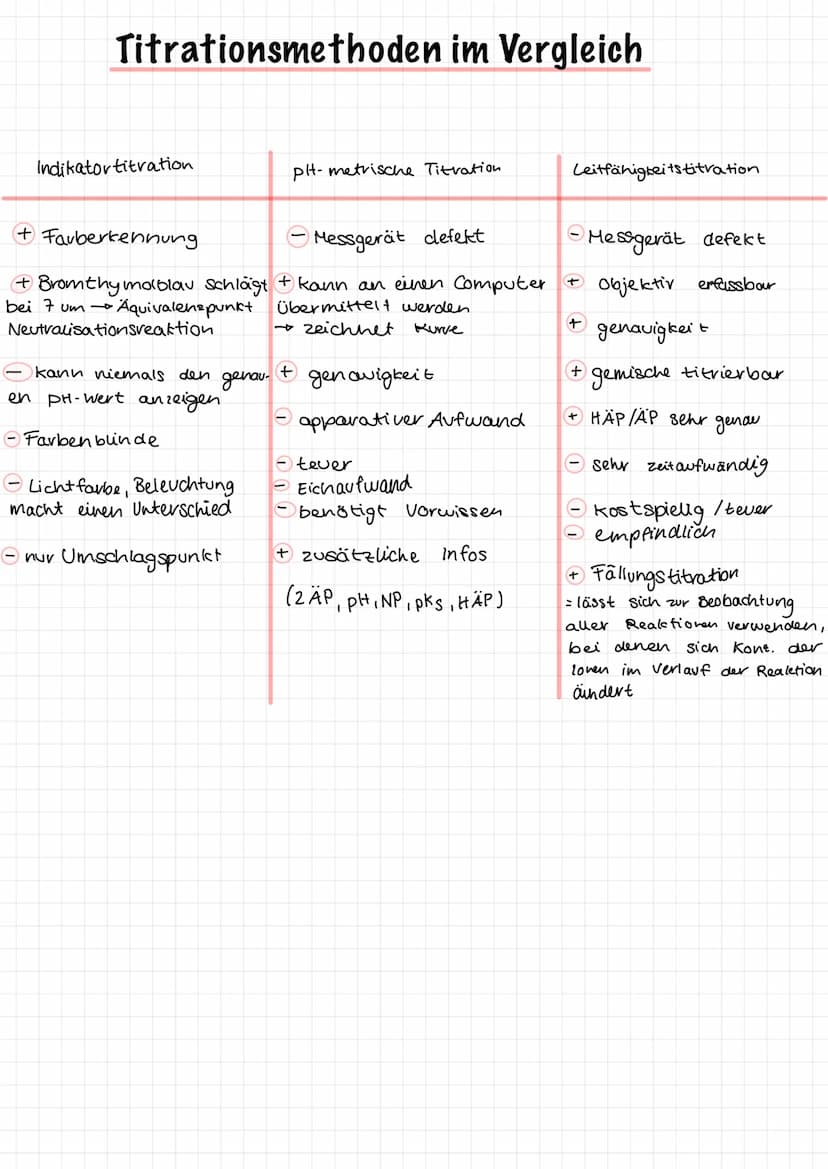 Titrationsmethoden im Vergleich
Indikatortitration
+ Farberkennung
+ Bromthymolblau schlägt
bei 7 um → Äquivalenzpunkt
Neutralisationsreaktion
- kann niemals den genau-
en pH-Wert anzeigen
- Farbenblinde
- Lichtfarbe, Beleuchtung
macht einen Unterschied
- nur Umschlagspunkt
pH-metrische Titration
- Messgerät defekt
+ kann an einen Computer
übermittelt werden
→ zeichnet Kurve
+ genauigkeit
- apparativer Aufwand
- teuer
- Eichaufwand
- benötigt Vorwissen
+ zusätzliche Infos
(2 ÄP, pH, NP, pKs, HÄP)
Leitfähigkeitstitration
- Messgerät defekt
+ Objektiv erfassbar
+ genauigkeit
+ gemische titrierbar
+ HÄP/ÄP sehr genau
- sehr zeitaufwändig
- kostspielig / teuer
- empfindlich
+ Fällungstitration
= lässt sich zur Beobachtung
aller Reaktionen verwenden,
bei denen sich Konz. der
Ionen im Verlauf der Reaktion
ändert